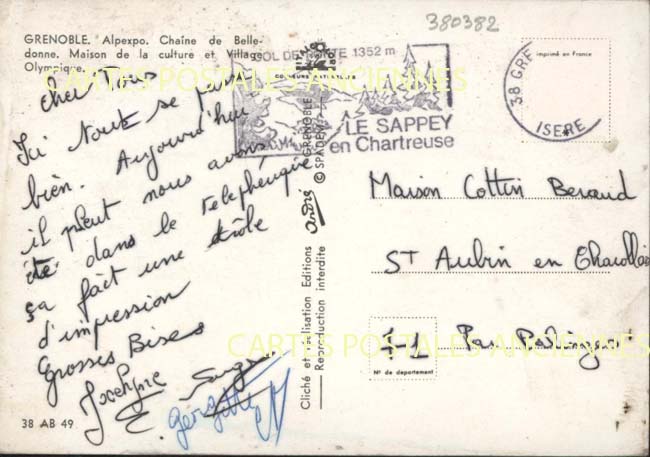 GRENOBLE. Alpexpo. Chaîne de Belle-
donne. Maison de la culture et Village
Olympique.
380382
COL DE PORTE 1352 m
LE SAPPEY
en Chartreuse
38 GRE
ISERE
imprimé en France
CARTES POSTALES ANCIENNES
cher tous
Ici tout se passe
bien. Aujourd'hui
il pleut nous avons
été dans le telephérique
ça fait une drôle
d'impression
Grosses Bises
Jocelyne
38 AB 49
Cliché et réalisation Editions
andré
GRENOBLE
Reproduction interdite
© SPADEM
Maison Cottin Beraud
ST Aubin en Charollais
71 Par Palinges
N° de département
CARTES POSTALES ANCIENNES